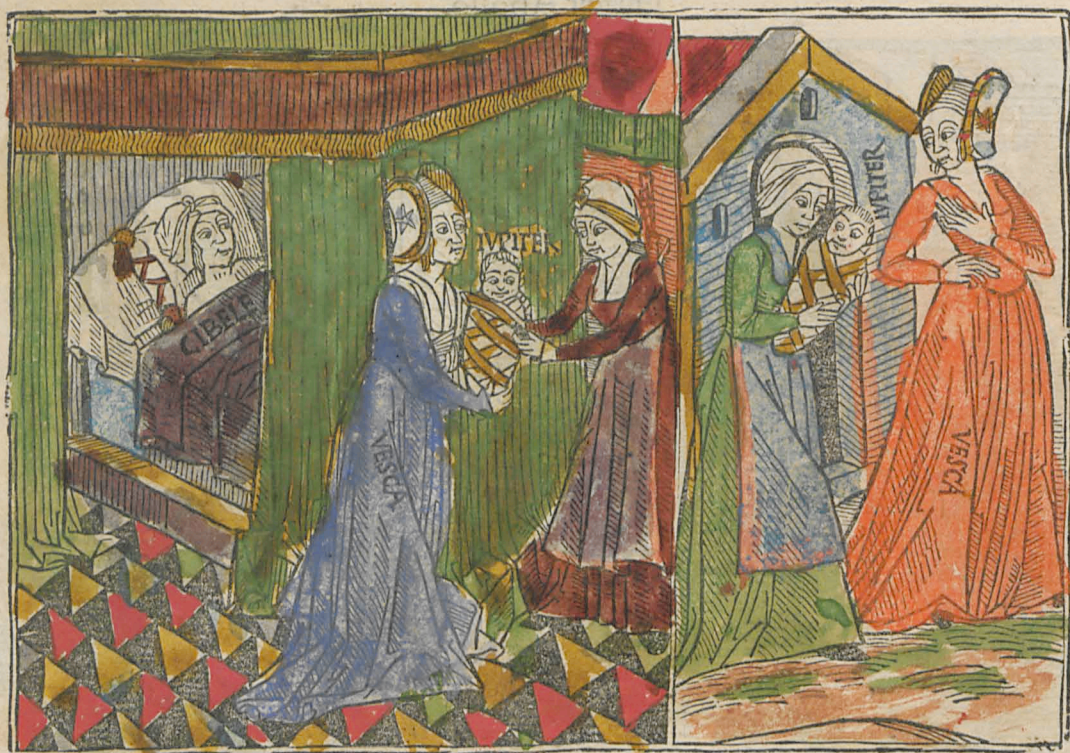 CIBELE
IVPITER
VESCA
IVPITER
VESCA